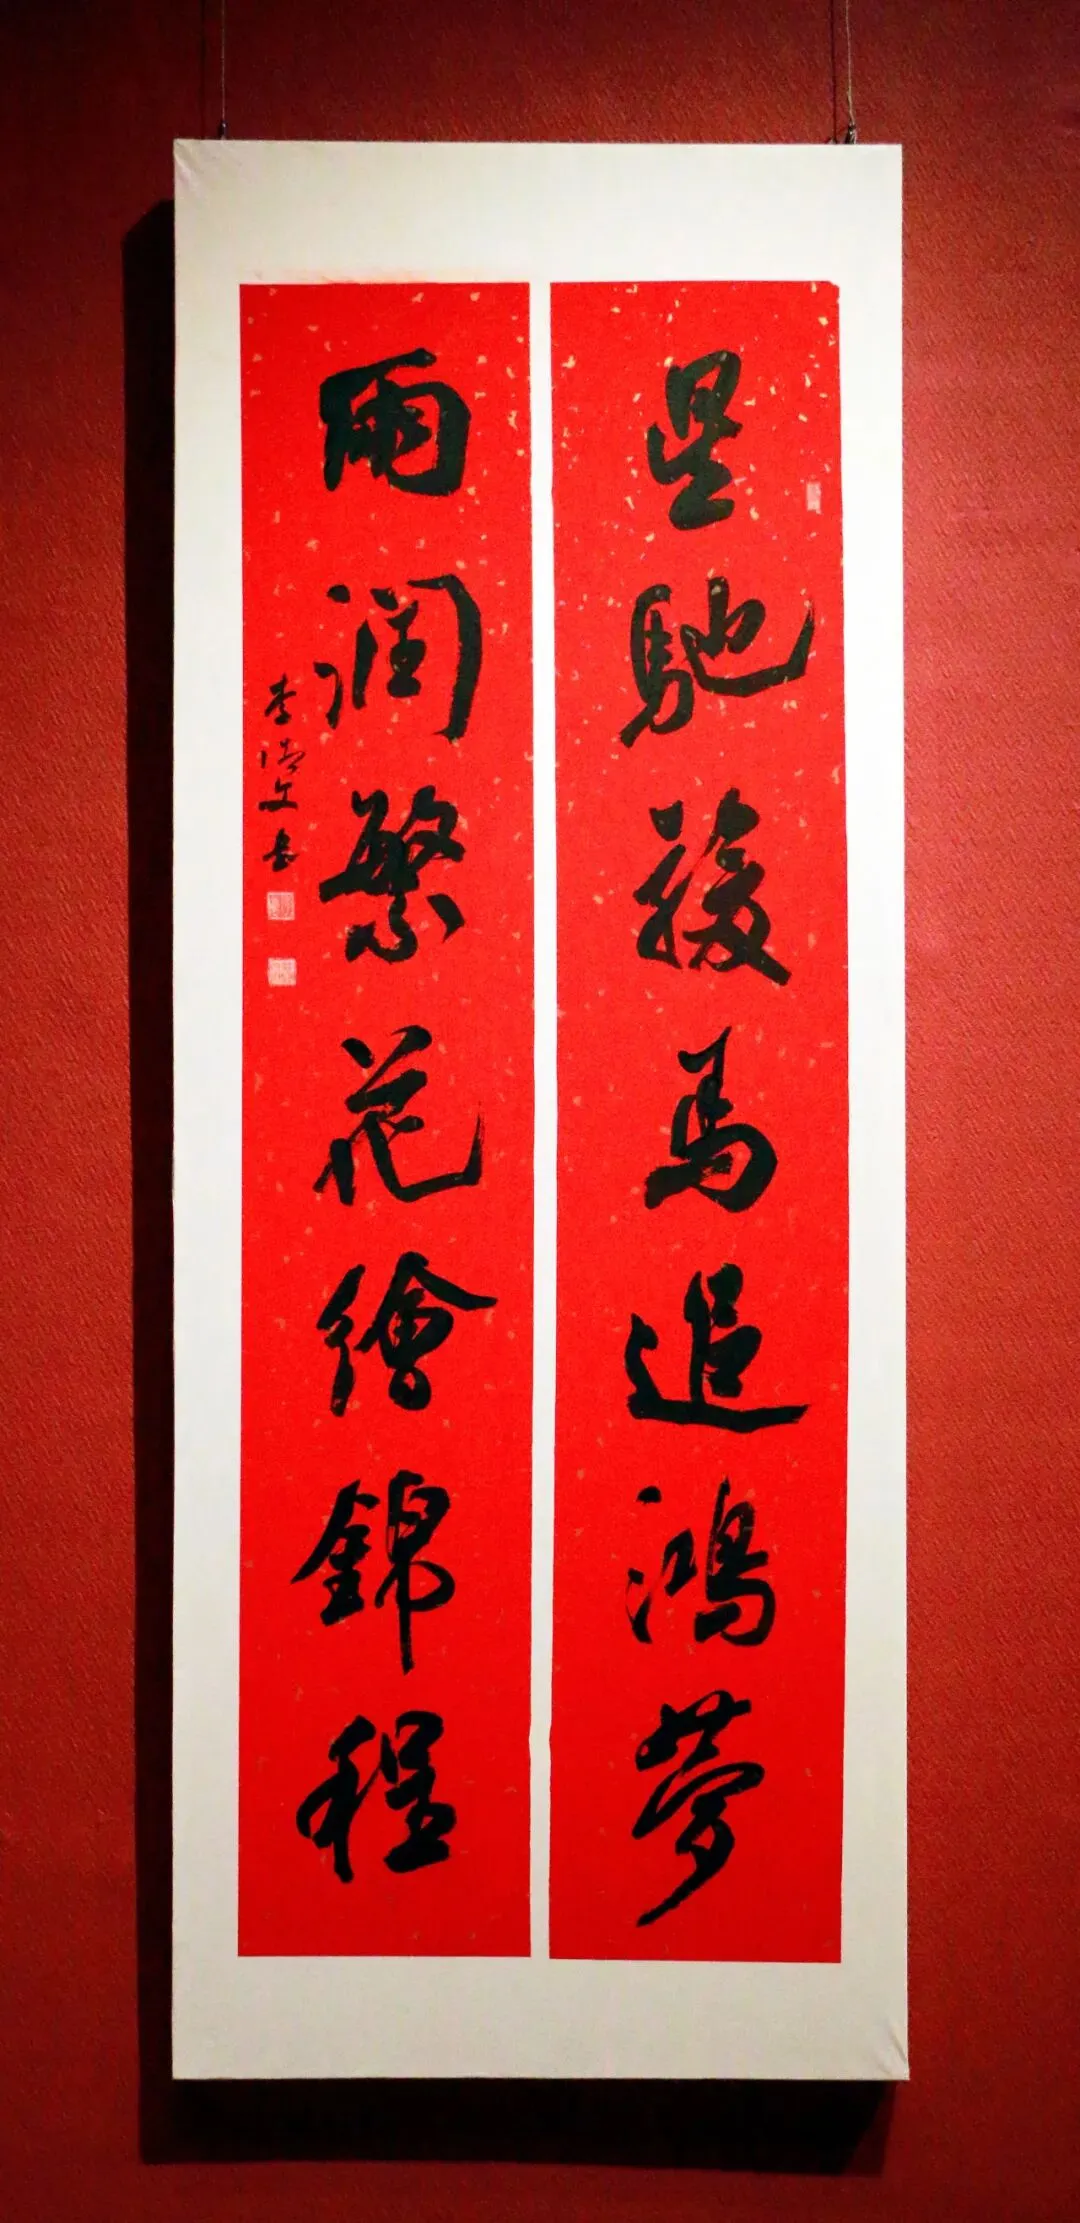 星馳駿馬追鴻夢
雨潤繁花繪錦程
李文書